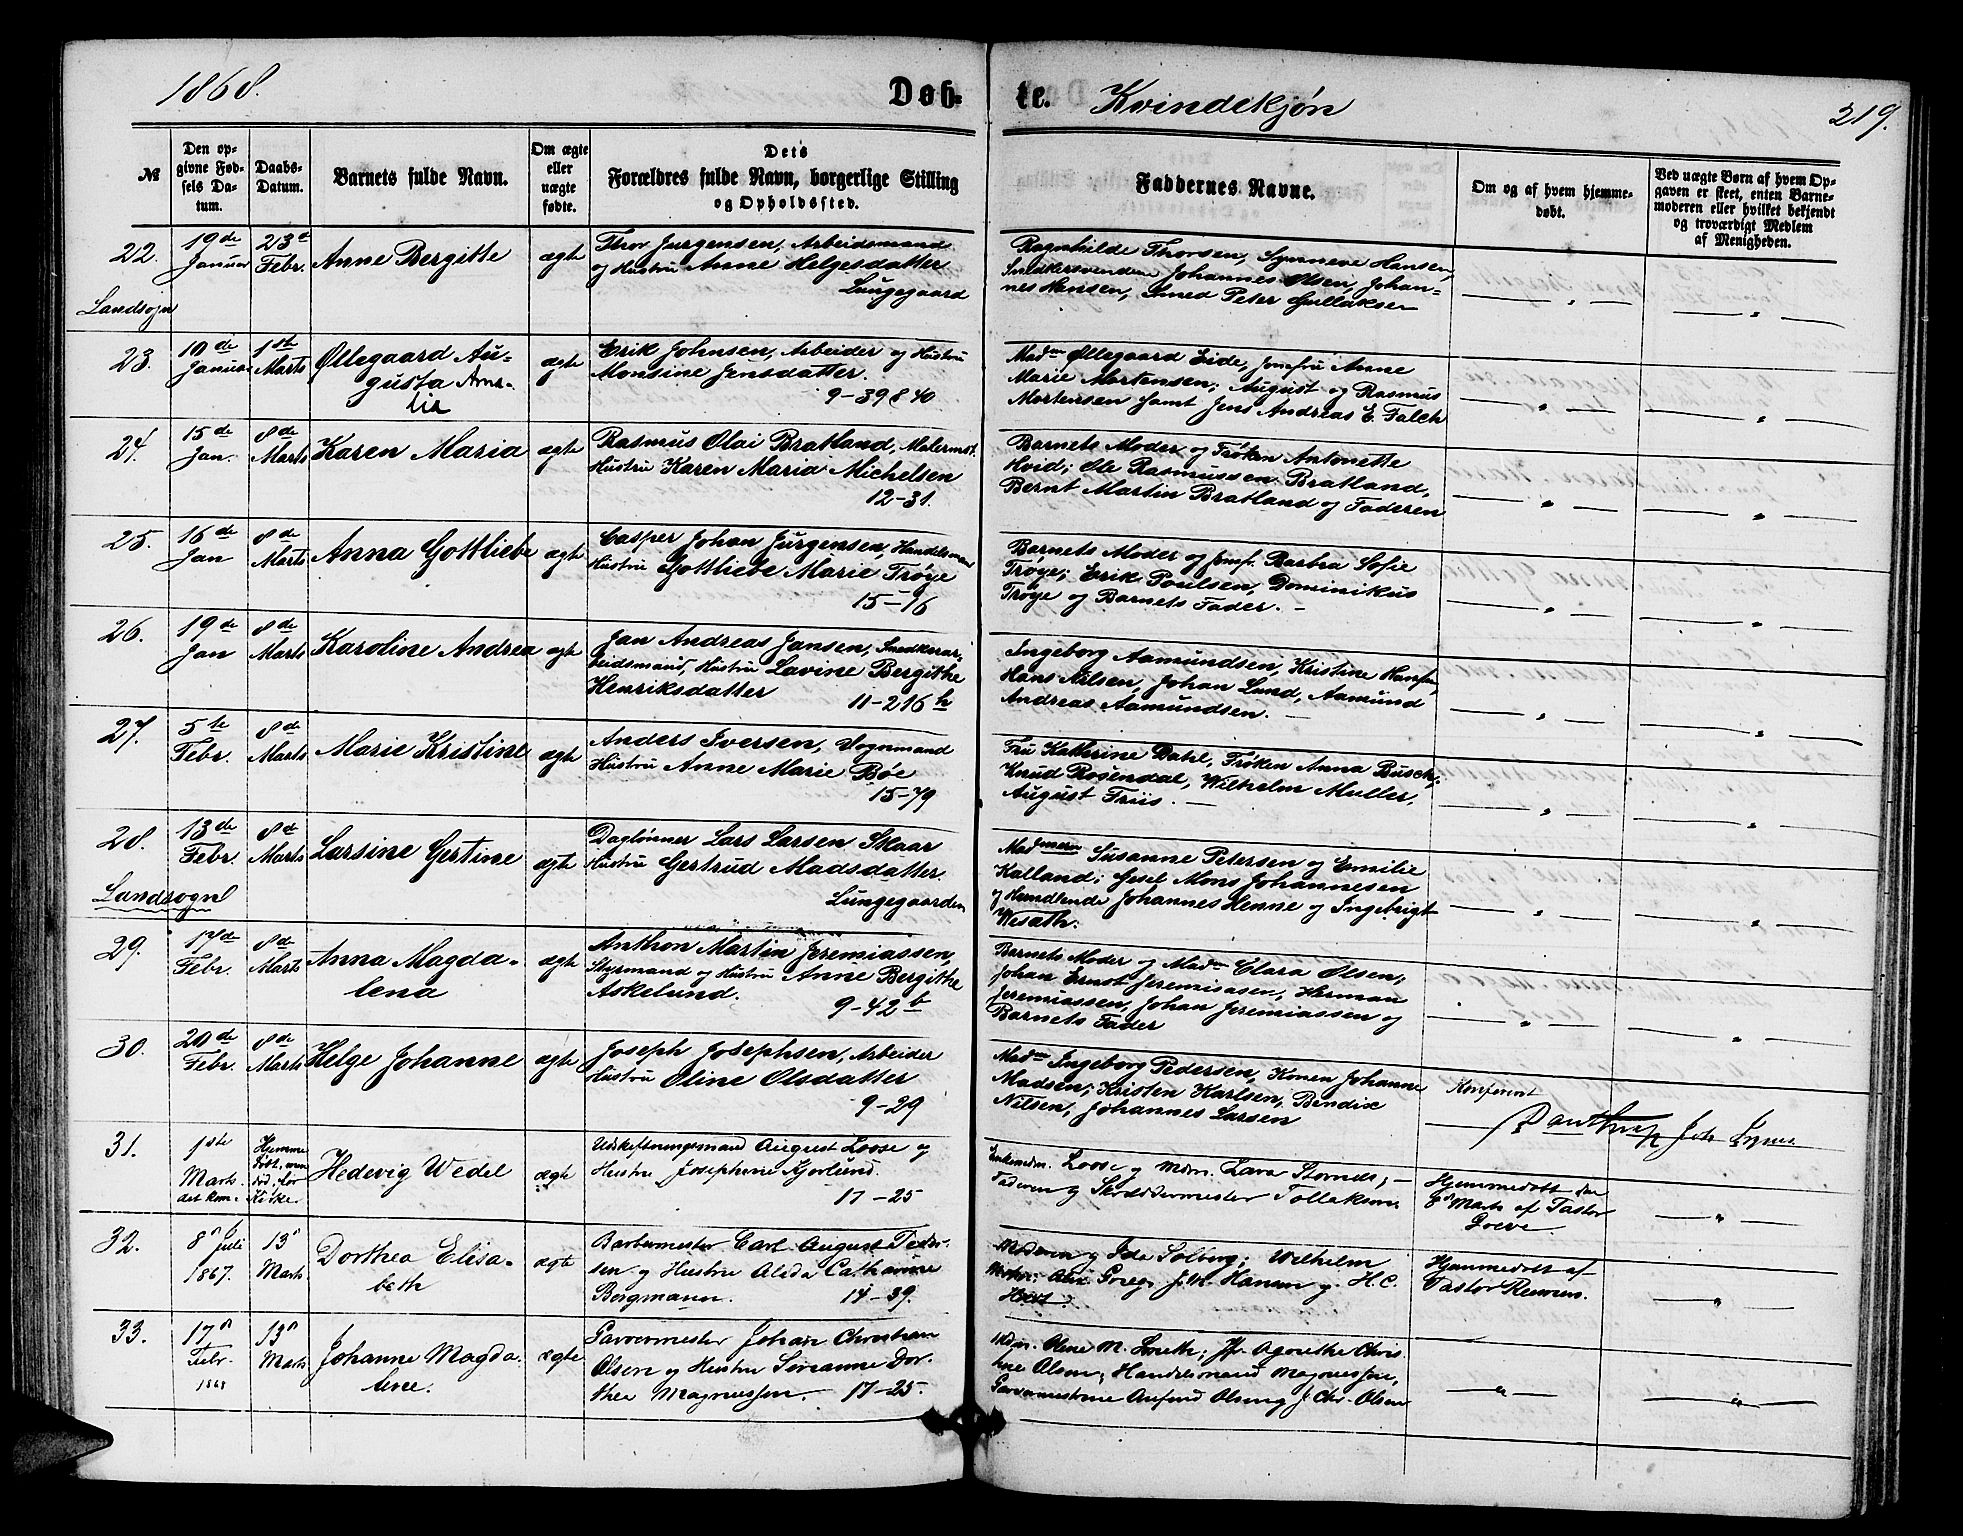 1868.
Døb-
te.
Kvindekjøn
219.
№
Den op-
givne Fød-
sels Da-
tum.
Daabs-
Datum.
Barnets fulde Navn.
Om ægte
eller
uægte
fødte.
Dets
Forældres fulde Navn, borgerlige Stilling
og Opholdssted.
Faddernes Navne.
Om og af hvem hjemme-
døbt.
Ved uægte Børn af hvem Op-
gaven er skeet, enten Barne-
moderen eller hvilket bekjendt
og troværdigt Medlem
af Menigheden.
22.
Landsogn
19de
Januar
23de
Febr.
Anne Bergitte
ægte
Thor Jurgensen, Arbeidsmand
og Hustru Anne Helgesdatter
Lungegaard
Ragnhilde Thorsen, Synneve Hansen,
Snedkersvendene Johannes Olsen, Johan-
nes Monsen, Smed Peter Gullaksen
23.
10de
Januar
1ste
Marts
Øllegaard Au-
gusta Ama-
lia
ægte
Erik Johnsen, Arbeider og Hustru
Monsine Jensdatter.
9-39&40
Madm Øllegaard Eide, Jomfru Anne
Marie Mortensen; August og Rasmus
Mortensen samt Jens Andreas E. Falch
24.
15de
Jan.
8de
Marts
Karen Maria
ægte
Rasmus Olai Bratland, Malermst.
Hustru Karen Maria Michelsen
12-31.
Barnets Moder og Frøken Antonette
Hvid; Ole Rasmussen Bratland,
Bernt Martin Bratland og Faderen
25.
16de
Jan
8de
Marts
Anna Gottliebe
ægte
Casper Johan Jurgensen, Handelsmand
Hustru Gottliebe Marie Trøye
15-16
Barnets Moder og Jomf. Barbra Sofie
Trøye; Erik Poulsen, Dominikus
Trøye og Barnets Fader. -
26.
19de
Jan
8de
Marts
Karoline Andrea
ægte
Jan Andreas Jansen, Snedkerar-
beidsmand, Hustru Lavine Bergithe
Henriksdatter 11-216h
Ingeborg Aamundsen, Kristine Hansen,
Hans Nilsen, Johan Lund, Aamund
Andreas Aamundsen. -
27.
5te
Febr.
8de
Marts
Marie Kristine
ægte
Anders Iversen, Vognmand
Hustru Anne Marie Bøe
15-79
Fru Kathrine Dahl, Frøken Anna Busch;
Knud Rosendal, Wilhelm Muller,
August Friis. -
28.
Landsogn
13de
Febr.
8de
Marts
Larsine Gertine
ægte
Daglønner Lars Larsen Skaar
Hustru Gertrud Madsdatter.
Lungegaarden
Madmerne Susanne Petersen og Emilie
Kalland; Gesel Mons Johannesen
og Handlende Johannes Henne og Ingebrigt
29.
17de
Febr.
8de
Marts
Anna Magda-
lena
ægte
Anthon Martin Jeremiassen,
Styrmand og Hustru Anne Bergithe
Askelund. 9-42b
Barnets Moder og Madm Clara Olsen;
Johan Ernst Jeremiasen, Herman
Jeremiassen, Johan Jeremiassen og
Barnets Fader
30.
20de
Febr.
8de
Marts
Helge Johanne
ægte
Joseph Josephsen, Arbeider
Hustru Oline Olsdatter
9-29
Madm Ingeborg Pedersen, Konen Johanne
Madsen; Kristen Karlsen, Bendix
Nilsen, Johannes Larsen
Konfereret
31.
1ste
Marts.
Hjemme
døbt, men
død før
Kirke.
Hedevig Wedel
ægte
August Loose og
Hustru Josephine Kjorlund.
17-25
Loose og Mdm. Lava
Faderen og Skræddermester Tollaksen
Hjemmedøbt den
8de Marts af Pastor
32.
8n Juli
1867.
13n
Marts
Dorthea Elisa-
beth
ægte
Barbermester Carl August Peder-
sen og Hustru Alida Catharine
Bergmann. 14-39.
Moderen og Ida Solberg; Wilhelm
Hansen og H.C.
Hjemmedøbt af
Pastor
33.
17n
Febr.
1868
13n
Marts
Johanne Magda-
lene.
ægte
Garvermester Johan Christian
Olsen og Hustru Sorianne Dor-
thea Magnussen. 17-25.
Mdm. Olene M. Smith; Jfr. Agnethe Chris
tine Olsen; Handelsmand Magnussen,
Garvermestrene Olsen og J. Chr. Olsen